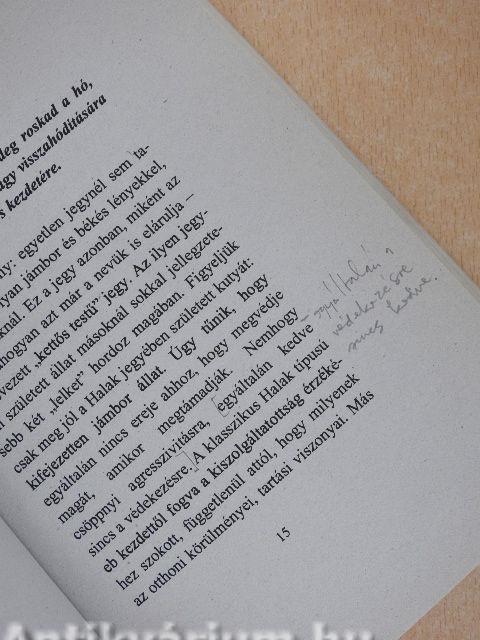 deg roskad a hó,
agy visszahódítására
s kezdetére.
ly: egyetlen jegynél sem ta-
lyan jámbor és békés lényekkel,
knál. Ez a jegy azonban, miként az
hogyan azt már a nevük is elárulja —
vezett „kettős testű” jegy. Az ilyen jegy-
n született állat másoknál sokkal jellegzete-
sebb két „lelket” hordoz magában. Figyeljük
csak meg jól a Halak jegyében született kutyát:
kifejezetten jámbor állat. Úgy tűnik, hogy
egyáltalán nincs ereje ahhoz, hogy megvédje
magát, amikor megtámadják. Nemhogy
csöppnyi agresszivitásra, egyáltalán kedve
sincs a védekezésre. A klasszikus Halak típusú
eb kezdettől fogva a kiszolgáltatottság érzéké-
hez szokott, függetlenül attól, hogy milyenek
az otthoni körülményei, tartási viszonyai. Más
15
védekezésre
nincs kedve.
Antikvárium.hu